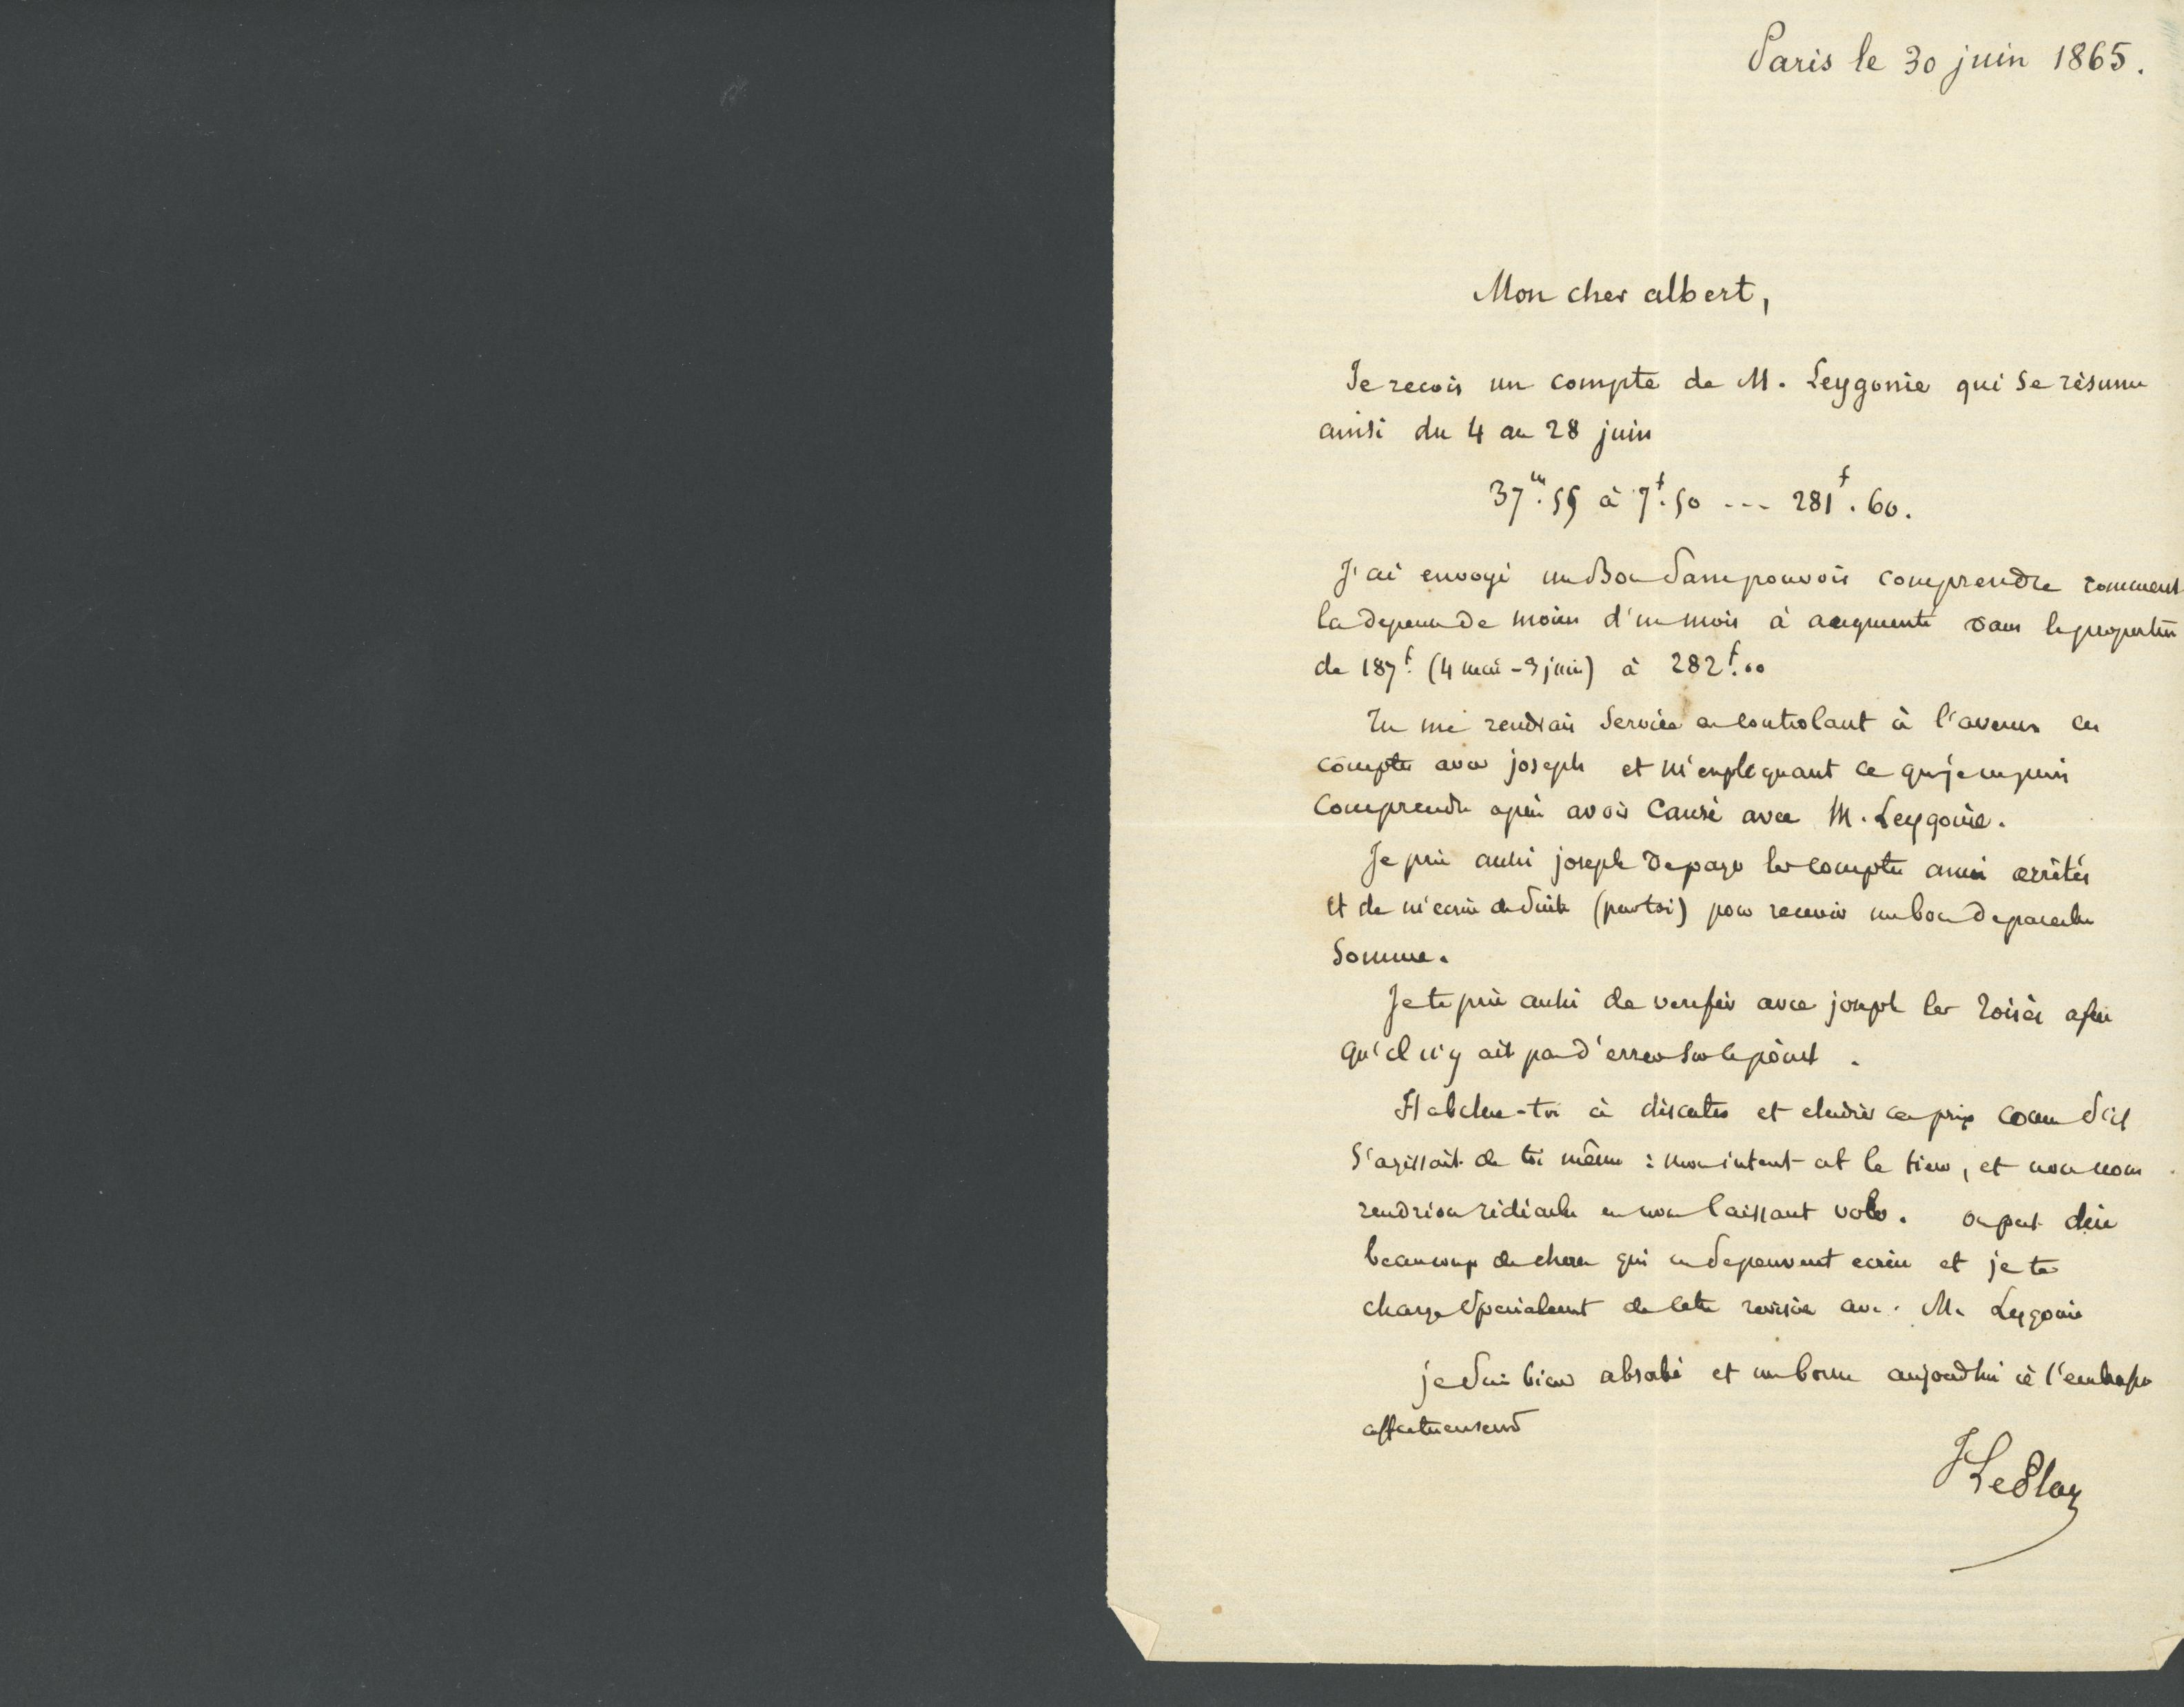 Paris le 30 juin 1865.
Mon cher albert,
Je recois un compte de M. Leygonie qui se résume
ainsi du 4 au 28 juin
37m.55 à 7f.50 --- 281f.60.
J'ai envoyé un Bon sans pouvoir comprendre comment
la depense de moins d'un mois à augmenté dans la proportion
de 187f. (4 mai - 3 juin) à 282f.00
Tu me rendrais service en controlant à l'avenir ces
comptes avec joseph et m'expliquant ce que je ne puis
comprendre après avoir causé avec M. Leygonie.
Je prie aussi joseph de payer les comptes ainsi arrêtés
et de m'ecrire de suite (par toi) pour recevoir un bon de pareille
somme.
Je te prie aussi de verifier avec joseph les toisés afin
qu'il n'y ait pas d'erreur sur ce point.
-toi à discuter et ces prix comme s'il
s'agissait de toi même : mon interet est le tien, et nous nous
rendrions ridicules en nous laissant voler. on peut dire
beaucoup de choses qui ne se peuvent ecrire et je te
charge specialement de cette revision avec M. Leygonie
je suis bien absorbé et me borne aujourdhui à t'embrasser
affectueusement